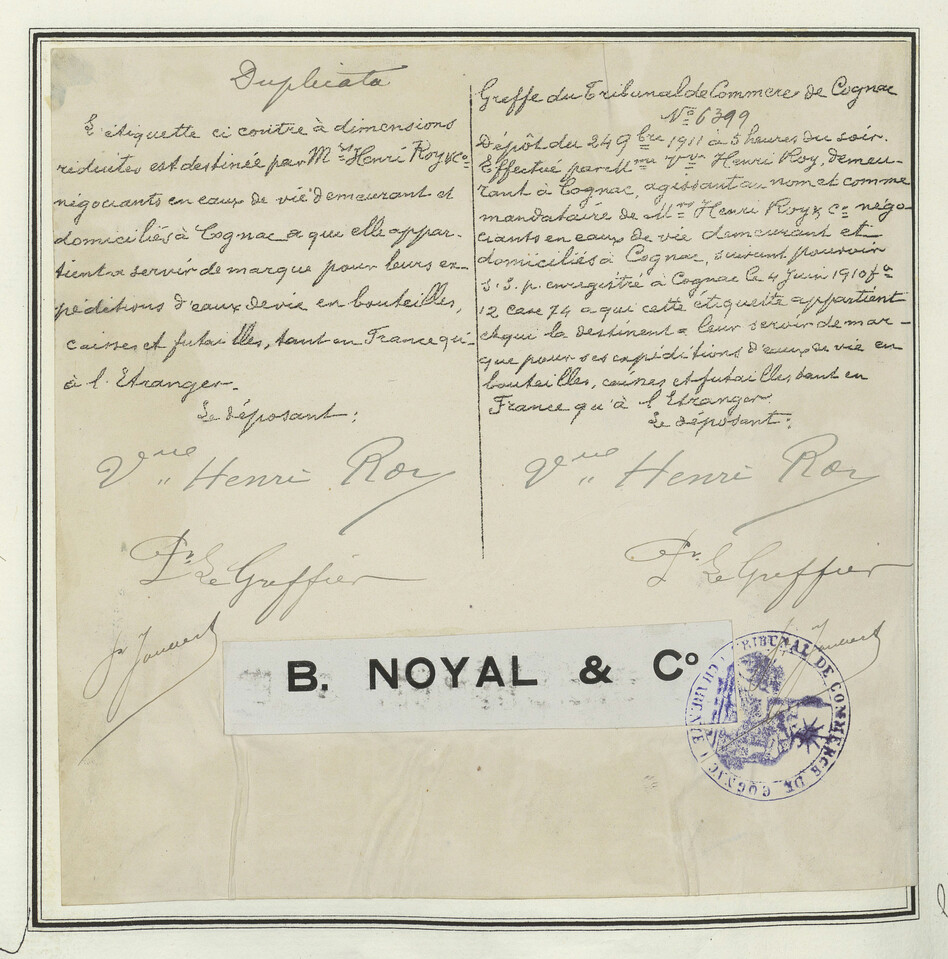 Duplicata
L'étiquette ci contre à dimensions
réduites est destinée par Mrs Henri Roy & Co
négociants en eaux de vie demeurant et
domiciliés à Cognac a que elle appar-
tient a servir de marque pour leurs ex-
péditions d'eaux de vie en bouteilles,
caisses et futailles, tant en France qu'-
à l'Etranger.
Le déposant:
Vve Henri Roy
Pr Le Greffier
Greffe du Tribunal de Commerce de Cognac
No 6399
Dépôt du 24 9bre 1911 à 5 heures du soir.
Effectué par Mme Vve Henri Roy, demeu-
rant à Cognac, agissant au nom et comme
mandataire de Mrs Henri Roy & Co négo-
ciants en eaux de vie demeurant et
domiciliés à Cognac, suivant pouvoir
s. s. p. enregistré à Cognac le 4 Juin 1910 fo
12 case 74 a qui cette etiquette appartient
et qui la destinent a leur servir de mar-
que pour ses expéditions d'eaux de vie en
bouteilles, caisses et futailles tant en
France qu'à l'Etranger
Le déposant:
Vve Henri Roy
Pr Le Greffier
B. NOYAL & Co
TRIBUNAL DE COMMERCE DE COGNAC